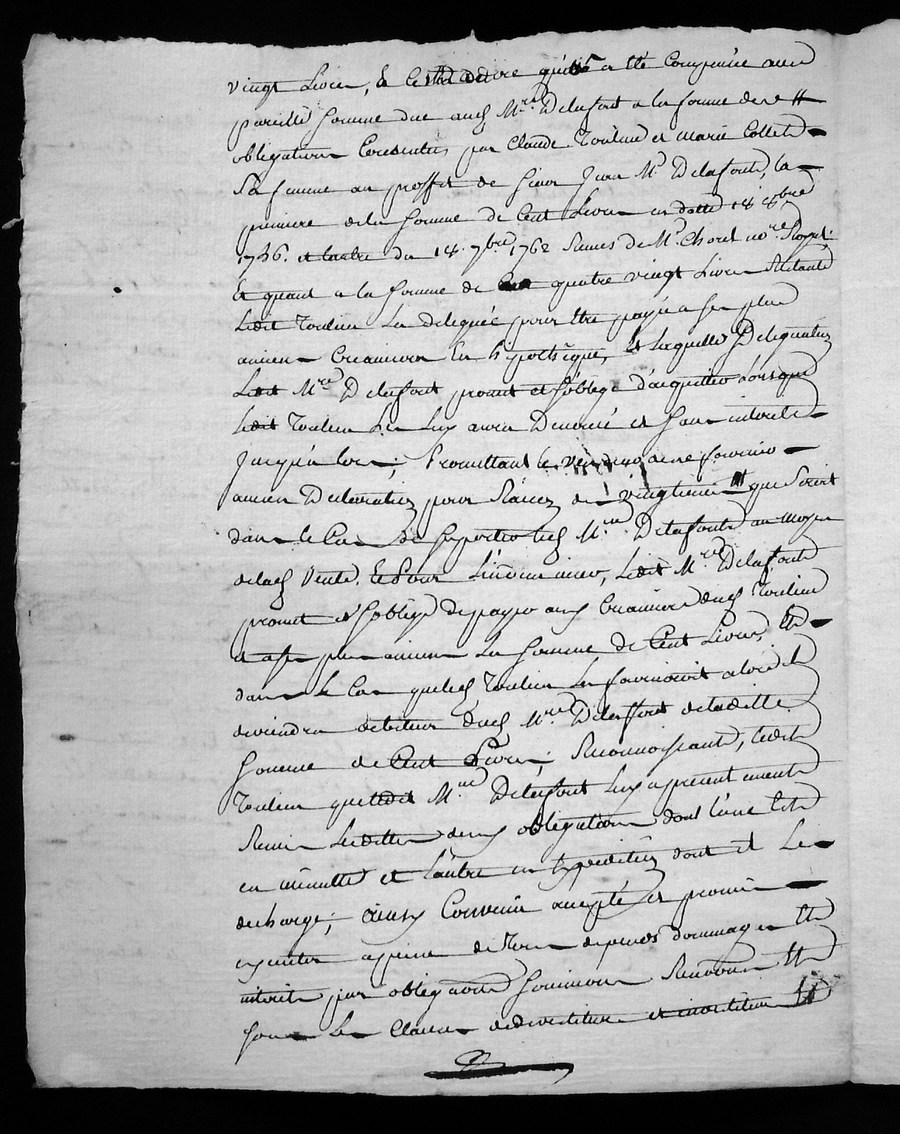 vingt Livres, Et cest adire quils a été Compensée avec
pareille Somme due aud Mre Delafont a la forme de
obligations Consenties par Claude Toulieu et marie Collet
Sa femme au proffit de Sieur Jean Mre Delafont, la
premiere de la Somme de Cent Livres en datte 18 8bre
1736. et lautre du 18. 7bre 1762 Reçues de Me Choret nore Royal;
Et quant a la Somme de quatre vingt Livres Restante
Ledit Toulieu La deleguée pour être payée a Ses plus
anciens Creanciers En hypothéque, et Laquelle Delegation
Ledit Mre Delafont promet et Soblige d'acquitter Lorsque
Ledit Toulieu Les Luy aura Denoncé et Sans interets
Jusqu'a lors; Promettant le vendeur de ne fournir
aucune Declaration pour Raison de vingtieme que Seroit
dans le Cas de Supporter led Mre Delafont au moyen
de lad Vente. Et Pour L'introument, Ledit Mre Delafont
promet et Soblige de payer aux Creanciers dud Toulieu
et a Ses plus anciens La Somme de Cent Livres, Et
dans le Cas que led Toulieu Les fourniroit alors il
deviendra debiteur dud Mre Delaffont de laditte
Somme de Cent Livres; Reconnoissant, ledit
Toulieu que ledit Mre Delafont Luy a presentement
Remis Lesdittes deux obligations dont l'une Est
en minutte et l'autre en Expedition dont il Le
decharge; ainsy Convenu accepté et promis
executer a peine de Tous depends dommages Et
interets par obligations Soumissions Renon Et
Sous Les Clauses de devestiture et investiture